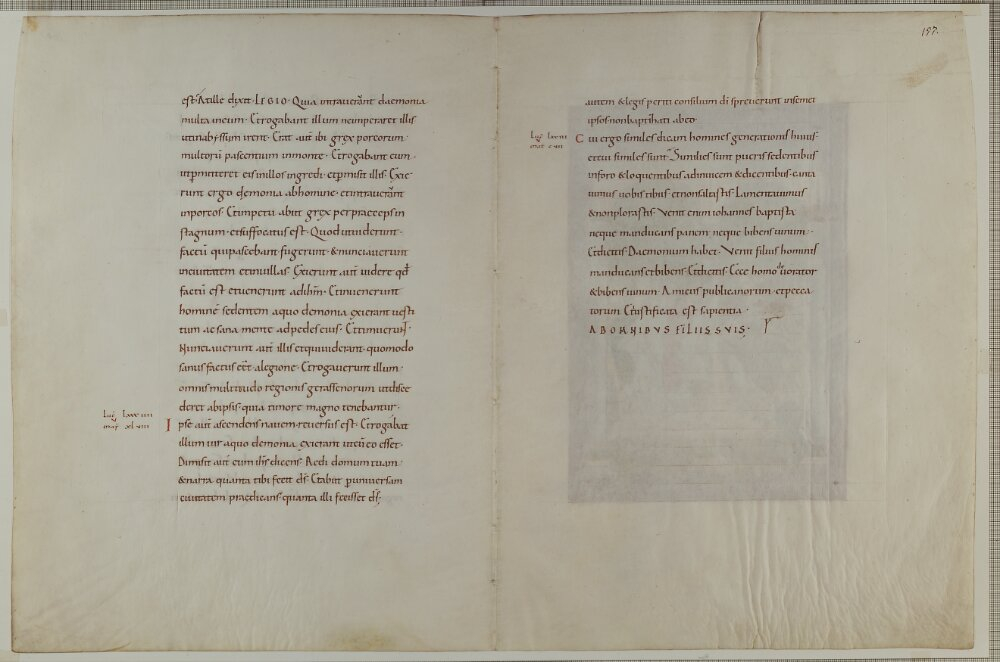 est. At ille dixit. LEGIO. Quia intraverant daemonia
multa in eum. Et rogabant illum ne imperaret illis
ut in abyssum irent. Erat aut ibi grex porcorum
multorū pascentium in monte. Et rogabant eum.
ut pmitteret eis in illos ingredi. et pmisit illis. Exie
runt ergo demonia ab homine. et intraverānt
in porcos. Et impetu abiit grex per praeceps in
stagnum. et suffocatus est. Quod ut viderunt
factū qui pascebant fugerunt. & nunciaverunt
in civitatem et in villas. Exierunt aut videre qđ
factū est et venerunt ad ihm. Et invenerunt
hominē sedentem a quo demonia exierant vesti
tum ac sana mente ad pedes eius. Et timuerut.
Nunciaverunt aut illis et qui viderant. quomodo
sanus factus eēt a legione. Et rogaverunt illum.
omnis multitudo regionis gerassenorum ut disce
deret ab ipsis. quia timore magno tenebantur.
Ipse aut ascendens navem. reversus est. Et rogabat
illum vir a quo demonia exierant ut cū eo esset.
Dimisit aut eum ihs dicens. Redi domum tuam.
& narra quanta tibi fecit ds. Et abiit p universam
civitatem praedicans. quanta illi fecisset ds.
197.
autem & legis periti consilium di spreverunt in semet
ipsos non baptizati ab eo.
Cui ergo similes dicam homines generationis huius.
et cui similes sunt. Similes sunt pueris sedentibus
in foro & loquentibus ad invicem & dicentibus. canta
vimus vobis tibiis et non saltastis. Lamentavimus
& non plorastis. Venit enim iohannes baptista
neque manducans panem neque bibens vinum.
Et dicitis Daemonium habet. Venit filius hominis
manducans et bibens. Et dicitis. Ecce homo devorator
& bibens vinum. Amicus publicanorum. et pecca
torum Et iustificata est sapientia.
AB OMNIBVS FILIIS SVIS.